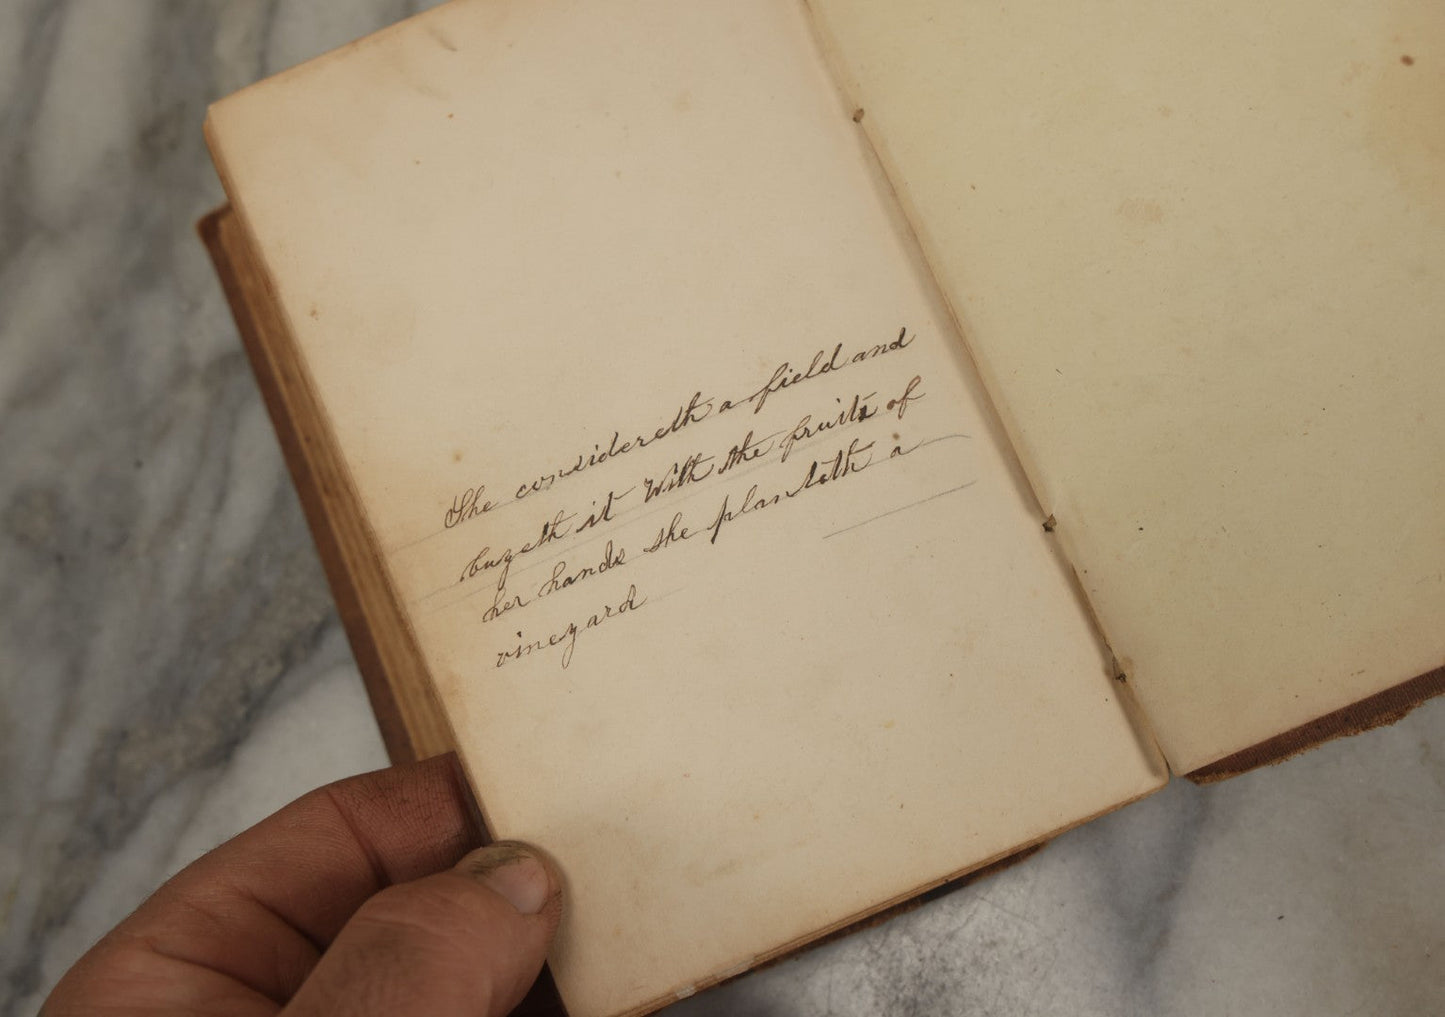 She considereth a field and
buyeth it With the fruits of
her hands she planteth a
vineyard